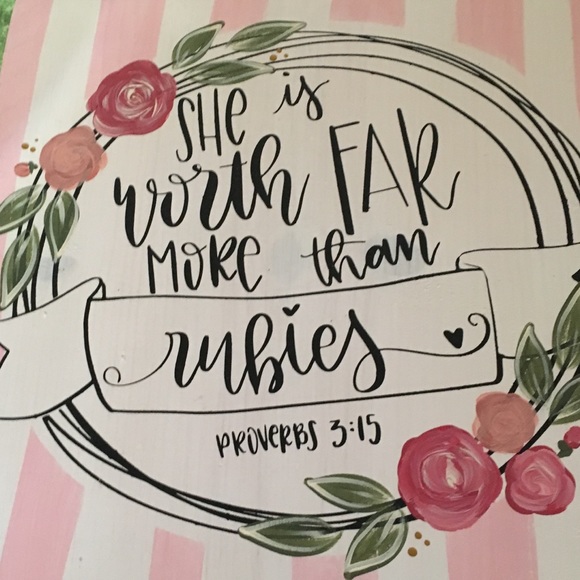 SHE is
worth FAR
MORE than
rubies
PROVERBS 3:15